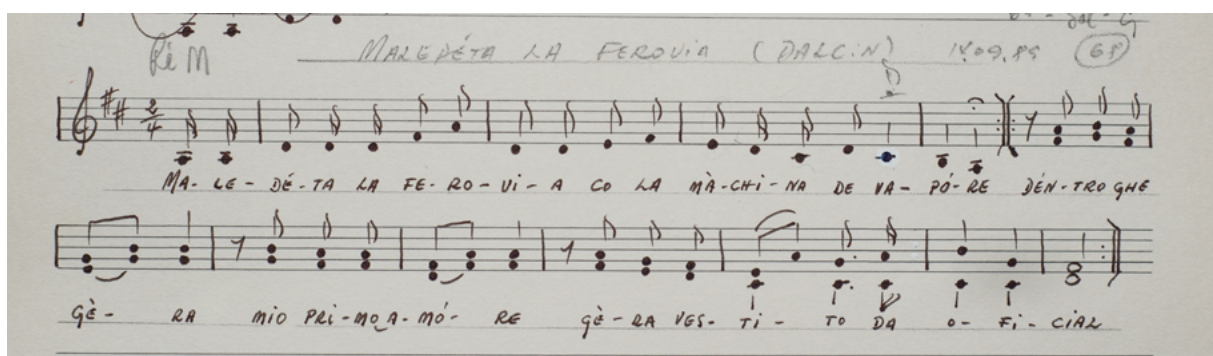 Ré M MALEDÉTA LA FEROVIA (DALCIN) 18.09.89 68
MA- LE- DÉ- TA LA FE- RO- VI- A CO LA MÀ-CHI- NA DE VA- PÓ- RE DÉN-TRO GHE
GÈ- RA MIO PRI-MO A-MÓ- RE GÈ-RA VES- TI- TO DA O- FI- CIAL